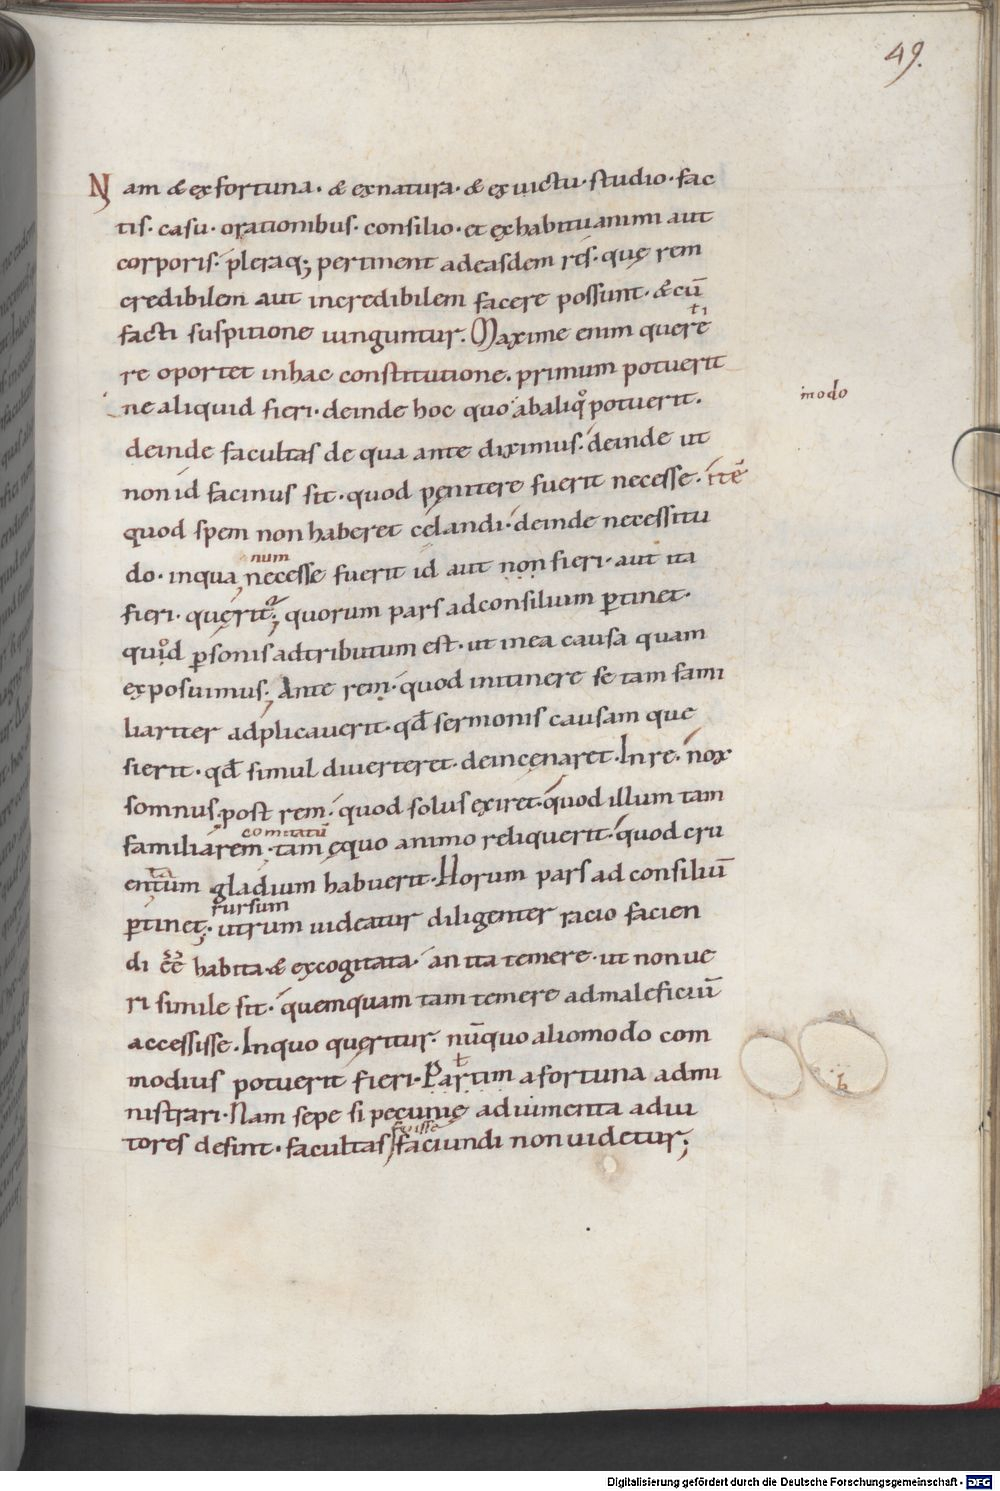 49.
Nam & ex fortuna· & ex natura· & ex uictu· studio· fac
tis· casu· orationibus· consilio· et ex habitu animi aut
corporis· pleraq; pertinent ad easdem res· quę rem
credibilem aut incredibilem facere possunt· & cū
facti suspitione iunguntur. Maxime enim quere
re oportet in hac constitutione· primum potuerit
ne aliquid fieri· deinde hoc quo ab aliqͦ potuerit.
imodo
deinde facultas de qua ante diximus· deinde ut
non id facinus sit· quod pęnitere fuerit necesse· itē
quod spem non haberet celandi· deinde necessitu
num
do· in qua necesse fuerit id aut non fieri· aut ita
fieri· quęrit; quorum pars ad consilium ptinet·
quid psonis adtributum est· ut in ea causa quam
exposuimus; Ante rem· quod in itinere se tam fami
liariter adplicauerit· qđ sermonis causam que
sierit· qđ simul diuerteret· dein cęnaret· In re· nox
somnus· post rem· quod solus exiret· quod illum tam
comitatū
familiarem· tam ęquo animo reliquerit· quod cru
entum gladium habuerit· Horum pars ad consiliū
rursum
ptinet· utrum uideatur diligenter racio facien
di ee habita· & excogitata· an ita temere· ut non ue
ri simile sit· quemquam tam temere ad maleficiū
accessisse· In quo quęritur· nū quo alio modo com
modius potuerit fieri· Partim a fortuna admi
nistrari· Nam sepe si pecunię adiumenta adiu
fuisse
tores desint· facultas faciundi non uidetur;
Digitalisierung gefördert durch die Deutsche Forschungsgemeinschaft - DFG